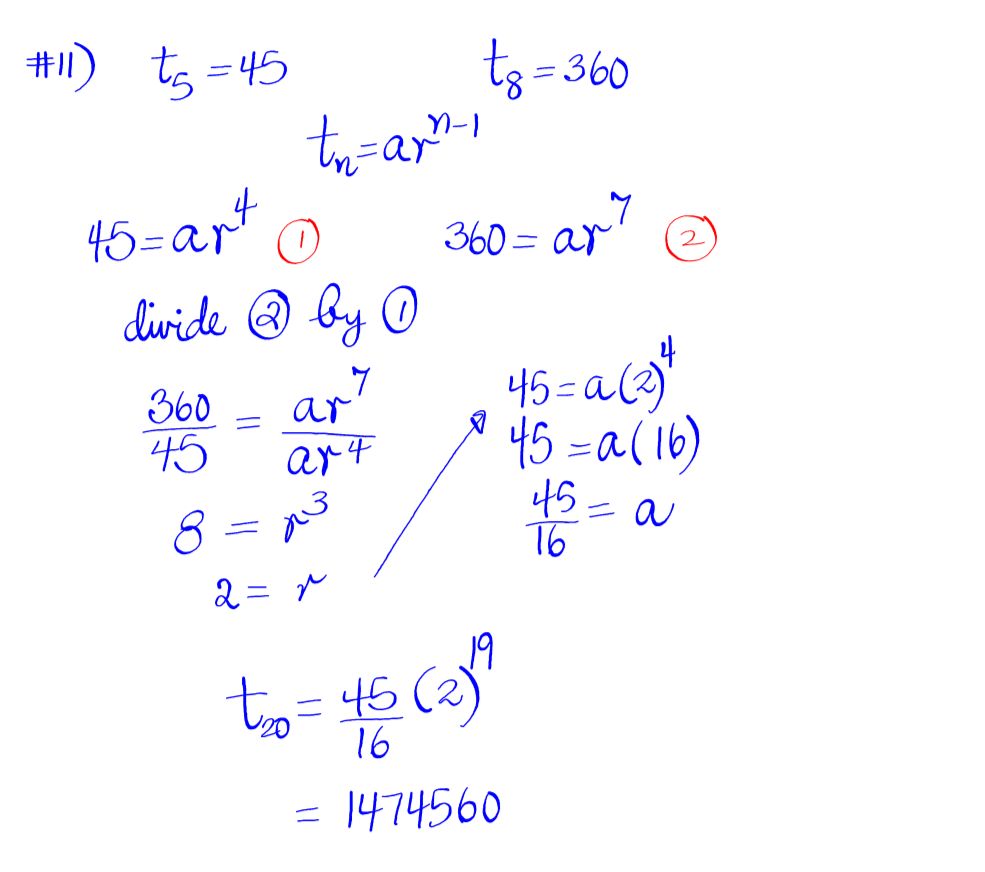 #11) t₅ = 45 t₈ = 360
tₙ = arⁿ⁻¹
45 = ar⁴ ① 360 = ar⁷ ②
divide ② by ①
360/45 = ar⁷/ar⁴
8 = r³
2 = r
45 = a(2)⁴
45 = a(16)
45/16 = a
t₂₀ = 45/16 (2)¹⁹
= 1474560